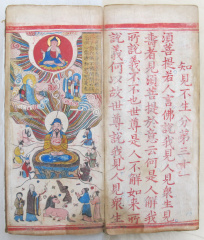 知見不生分第三十一
須菩提若人言佛說我見人見衆生見
壽者見須菩提於意云何是人解我
所說義不不也世尊是人不解如來所
說義何以故世尊說我見人見衆生